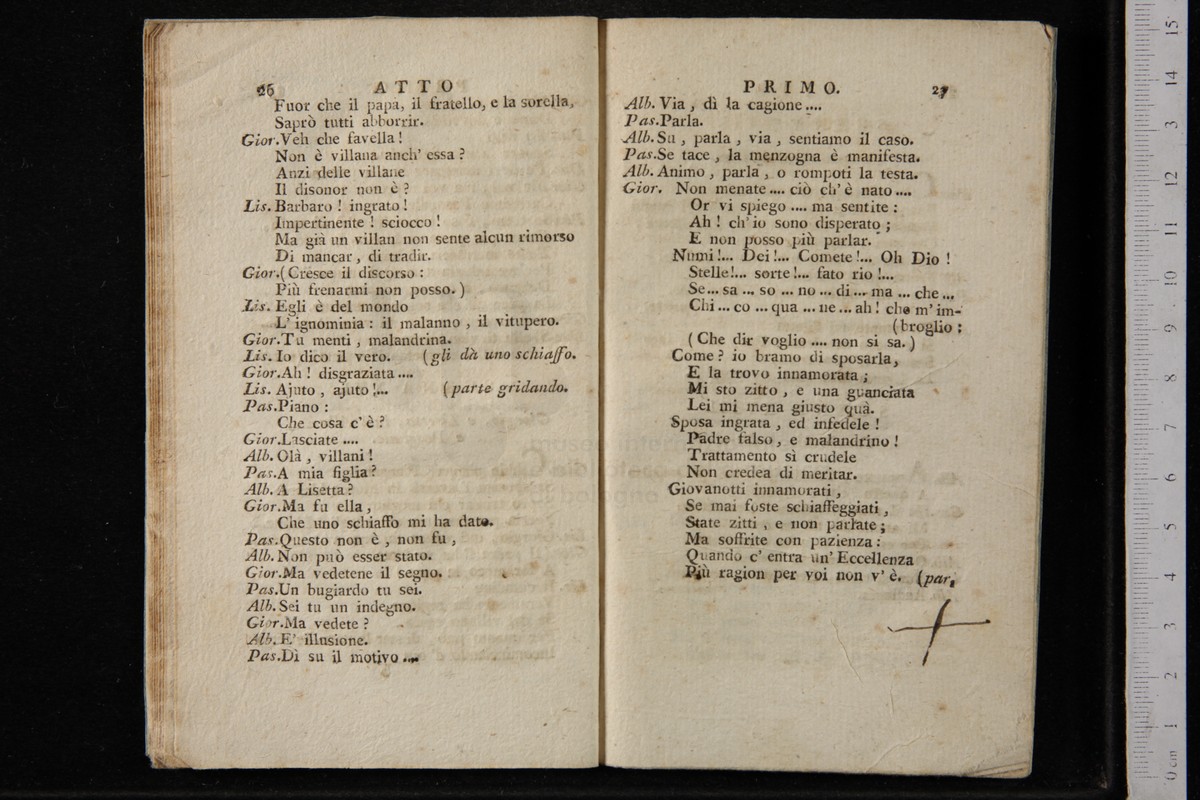 26 ATTO
Fuor che il papa, il fratello, e la sorella,
Saprò tutti abborrir.
Gior. Veh che favella!
Non è villana anch' essa?
Anzi delle villane
Il disonor non è?
Lis. Barbaro! ingrato!
Impertinente! sciocco!
Ma già un villan non sente alcun rimorso
Di mancar, di tradir.
Gior. (Cresce il discorso:
Più frenarmi non posso.)
Lis. Egli è del mondo
L' ignominia: il malanno, il vitupero.
Gior. Tu menti, malandrina.
Lis. Io dico il vero. (gli dà uno schiaffo.
Gior. Ah! disgraziata....
Lis. Ajuto, ajuto!... (parte gridando.
Pas. Piano:
Che cosa c'è?
Gior. Lasciate....
Alb. Olà, villani!
Pas. A mia figlia?
Alb. A Lisetta?
Gior. Ma fu ella,
Che uno schiaffo mi ha dato.
Pas. Questo non è, non fu,
Alb. Non può esser stato.
Gior. Ma vedetene il segno.
Pas. Un bugiardo tu sei.
Alb. Sei tu un indegno.
Gior. Ma vedete?
Alb. E' illusione.
Pas. Dì su il motivo....
PRIMO. 27
Alb. Via, dì la cagione....
Pas. Parla.
Alb. Su, parla, via, sentiamo il caso.
Pas. Se tace, la menzogna è manifesta.
Alb. Animo, parla, o rompoti la testa.
Gior. Non menate.... ciò ch' è nato....
Or vi spiego.... ma sentite:
Ah! ch' io sono disperato;
E non posso più parlar.
Numi!... Dei!... Comete!... Oh Dio!
Stelle!... sorte!... fato rio!...
Se... sa... so... no... di... ma... che...
Chi... co... qua... ne... ah! che m' im-
(broglio:
(Che dir voglio.... non si sa.)
Come? io bramo di sposarla,
E la trovo innamorata;
Mi sto zitto, e una guanciata
Lei mi mena giusto quà.
Sposa ingrata, ed infedele!
Padre falso, e malandrino!
Trattamento sì crudele
Non credea di meritar.
Giovanotti innamorati,
Se mai foste schiaffeggiati,
State zitti, e non parlate;
Ma soffrite con pazienza:
Quando c' entra un' Eccellenza
Più ragion per voi non v' è. (par.